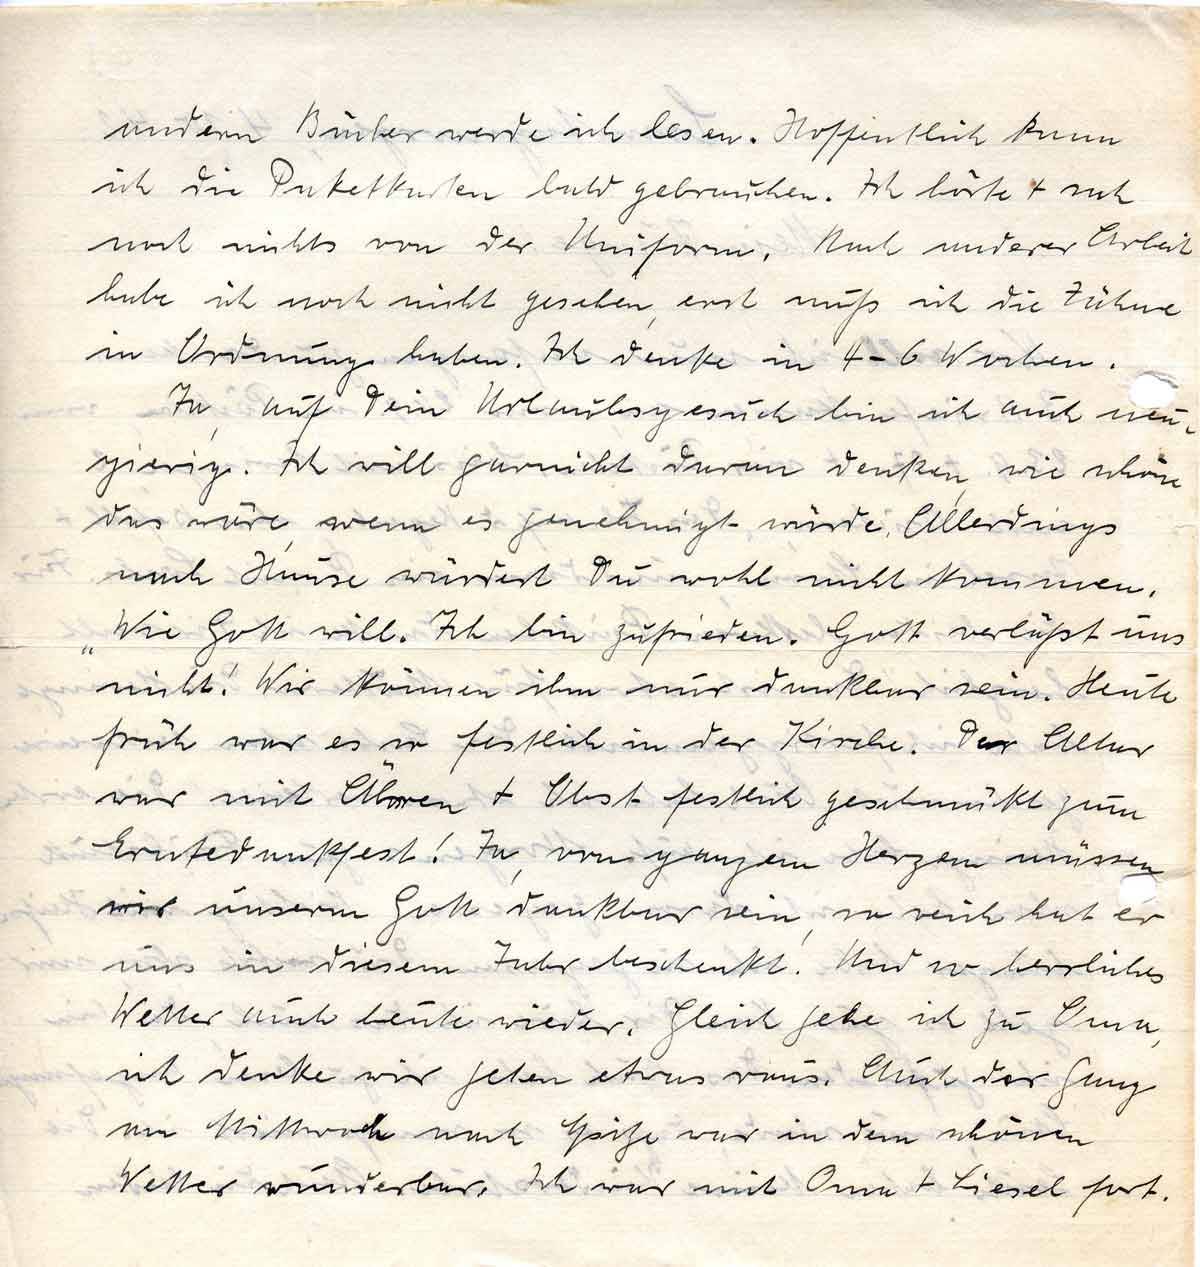 andern Bücher werde ich lesen. Hoffentlich kann
ich die Paketkarten bald gebrauchen. Ich hörte + sah
noch nichts von der Uniform. Nach anderer Arbeit
habe ich noch nicht gesehen, erst muß ich die Zähne
in Ordnung haben. Ich denke in 4-6 Wochen.
Ja, auf Dein Urlaubsgesuch bin ich auch neu-
gierig. Ich will garnicht daran denken, wie schön
das wäre, wenn es genehmigt würde. Allerdings
nach Hause würdest Du wohl nicht kommen.
„Wie Gott will. Ich bin zufrieden. Gott verläßt uns
nicht! Wir können ihm nur dankbar sein. Heute
früh war es so festlich in der Kirche. Der Altar
war mit Ähren + Obst festlich geschmückt zum
Erntedankfest! Ja, von ganzem Herzen müssen
wir unserm Gott dankbar sein, so reich hat er
uns in diesem Jahr beschenkt! Und so herrliches
Wetter auch heute wieder. Gleich gehe ich zu Oma,
ich denke wir gehen etwas raus. Auch der Gang
am Mittwoch nach war in dem schönen
Wetter wunderbar. Ich war mit Oma + Liesel fort.